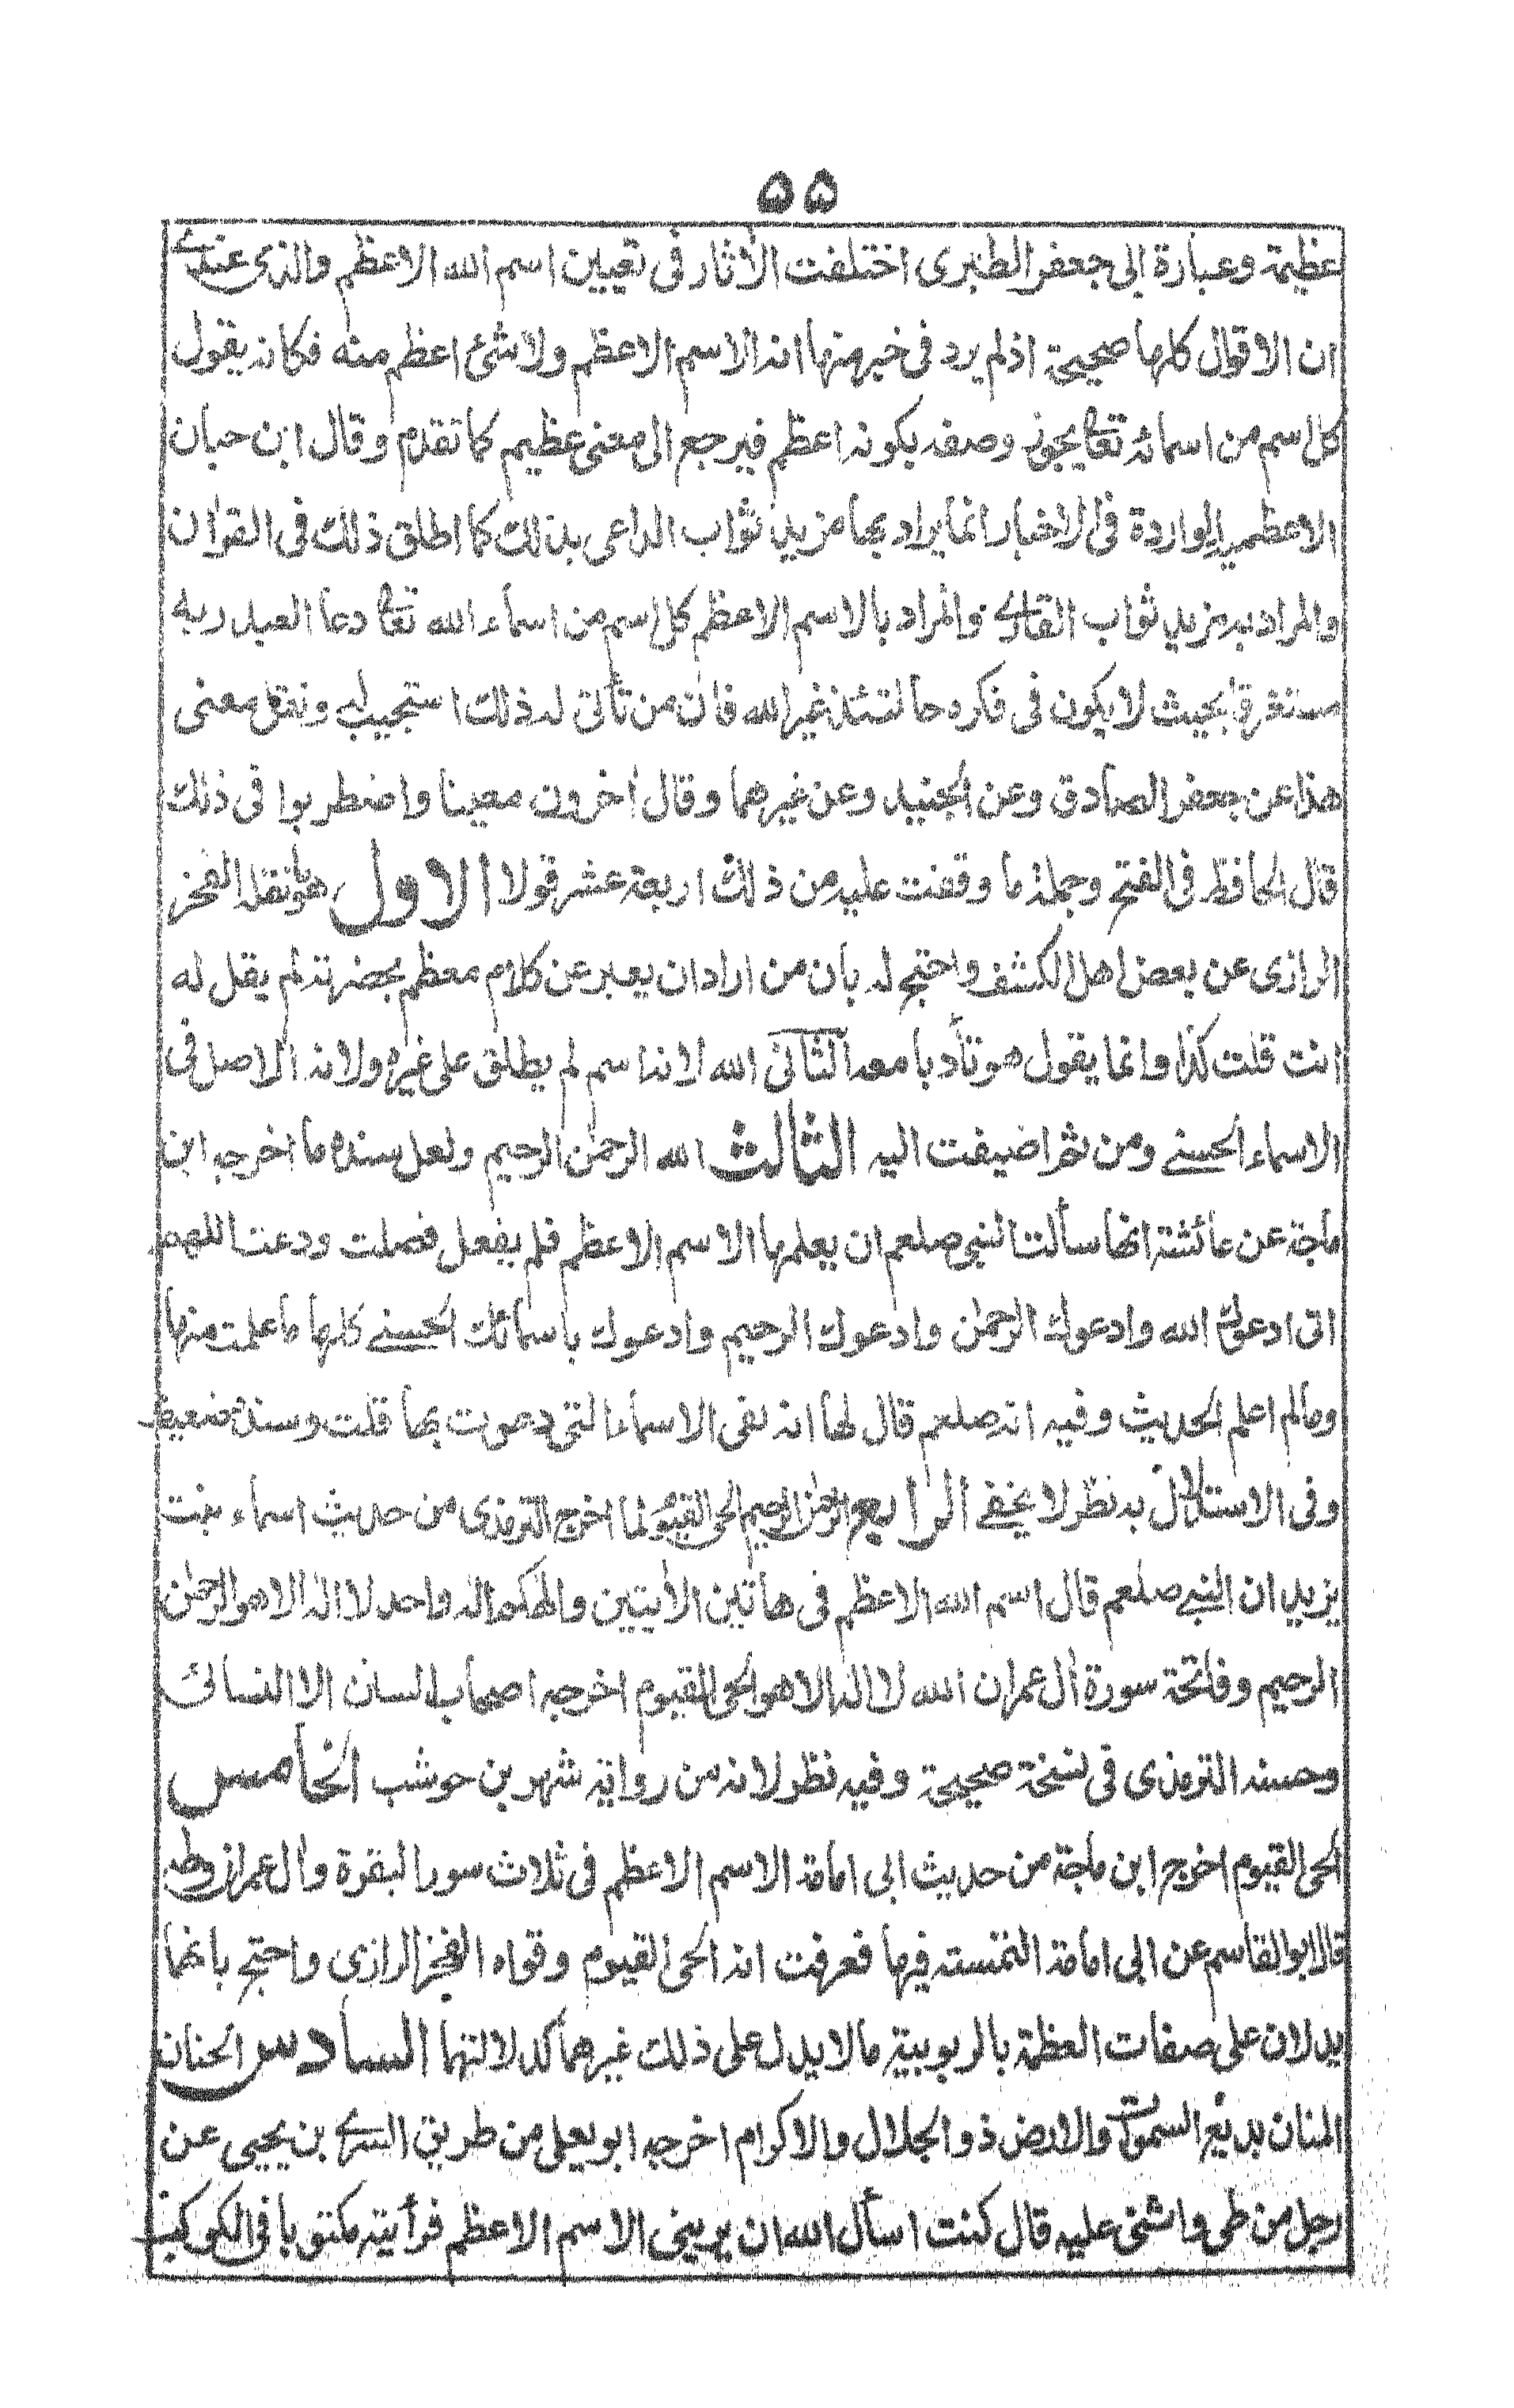 ۵۵
عظيمة وعبارة ابى جعفر الطبرى اختلفت الآثار فى تعيين اسم الله الاعظم والذى عندى
ان الاقوال كلها صحيحة اذ لم يرد فى خبر منها انه الاسم الاعظم ولا شئ اعظم منه فكانه يقول
كل اسم من اسمائه تعالى يجوز وصفه بكونه اعظم فيرجع الى معنى عظيم كما تقدم وقال ابن حبان
الاعظمية الواردة فى الاخبار انما يراد بها مزيد ثواب الداعى بذلك كما اطلق ذلك فى القرآن
والمراد به مزيد ثواب القارى والمراد بالاسم الاعظم كل اسم من اسماء الله تعالى دعا العبد ربه
مستغرقا بحيث لا يكون فى فكره حالتئذ غير الله فان من تأتى له ذلك استجيب له ونقل معنى
هذا عن جعفر الصادق وعن الجنيد وعن غيرهما وقال آخرون معينا واضطربوا فى ذلك
قال الحافظ فى الفتح وجملة ما وقفت عليه من ذلك اربعة عشر قولا الاول هو نقله الفخر
الرازى عن بعض اهل الكشف واحتج له بان من اراد ان يعبر عن كلام معظم بحضرته لم يقل له
انت قلت كذا وانما يقول هو تأدبا معه الثانى الله لانه اسم لم يطلق على غيره ولانه الاصل فى
الاسماء الحسنى ومن ثم اضيفت اليه الثالث الله الرحمٰن الرحيم ولعل سنده ما اخرجه ابن
ماجة عن عائشة انها سألت النبى صلعم ان يعلمها الاسم الاعظم فلم يفعل فصلت ودعت اللهم
انى ادعوك الله وادعوك الرحمٰن وادعوك الرحيم وادعوك باسمائك الحسنى كلها ما علمت منها
وما لم اعلم الحديث وفيه انه صلعم قال لها انه لفى الاسماء التى دعوت بها قلت وسنده ضعيف
وفى الاستدلال به نظر لا يخفى الرابع الرحمٰن الرحيم الحى القيوم لما اخرج الترمذى من حديث اسماء بنت
يزيد ان النبى صلعم قال اسم الله الاعظم فى هاتين الآيتين والهكم اله واحد لا اله الا هو الرحمٰن
الرحيم وفاتحة سورة آل عمران الله لا اله الا هو الحى القيوم اخرجه اصحاب السنن الا النسائى
وحسنه الترمذى فى نسخة صحيحة وفيه نظر لانه من رواية شهر بن حوشب الخامس
الحى القيوم اخرج ابن ماجة من حديث ابى امامة الاسم الاعظم فى ثلاث سور البقرة وآل عمران وطه
قال ابو القاسم عن ابى امامة التمسته فيها فعرفت انه الحى القيوم وقواه الفخر الرازى واحتج بانهما
يدلان على صفات العظمة بالربوبية ما لا يدل على ذلك غيرهما كدلالتهما السادس الحنان
المنان بديع السمٰوات والارض ذو الجلال والاكرام اخرجه ابو يعلى من طريق السرى بن يحيى عن
رجل من طى واثنى عليه قال كنت اسأل الله ان يرينى الاسم الاعظم فرأيته مكتوبا فى الكوكب